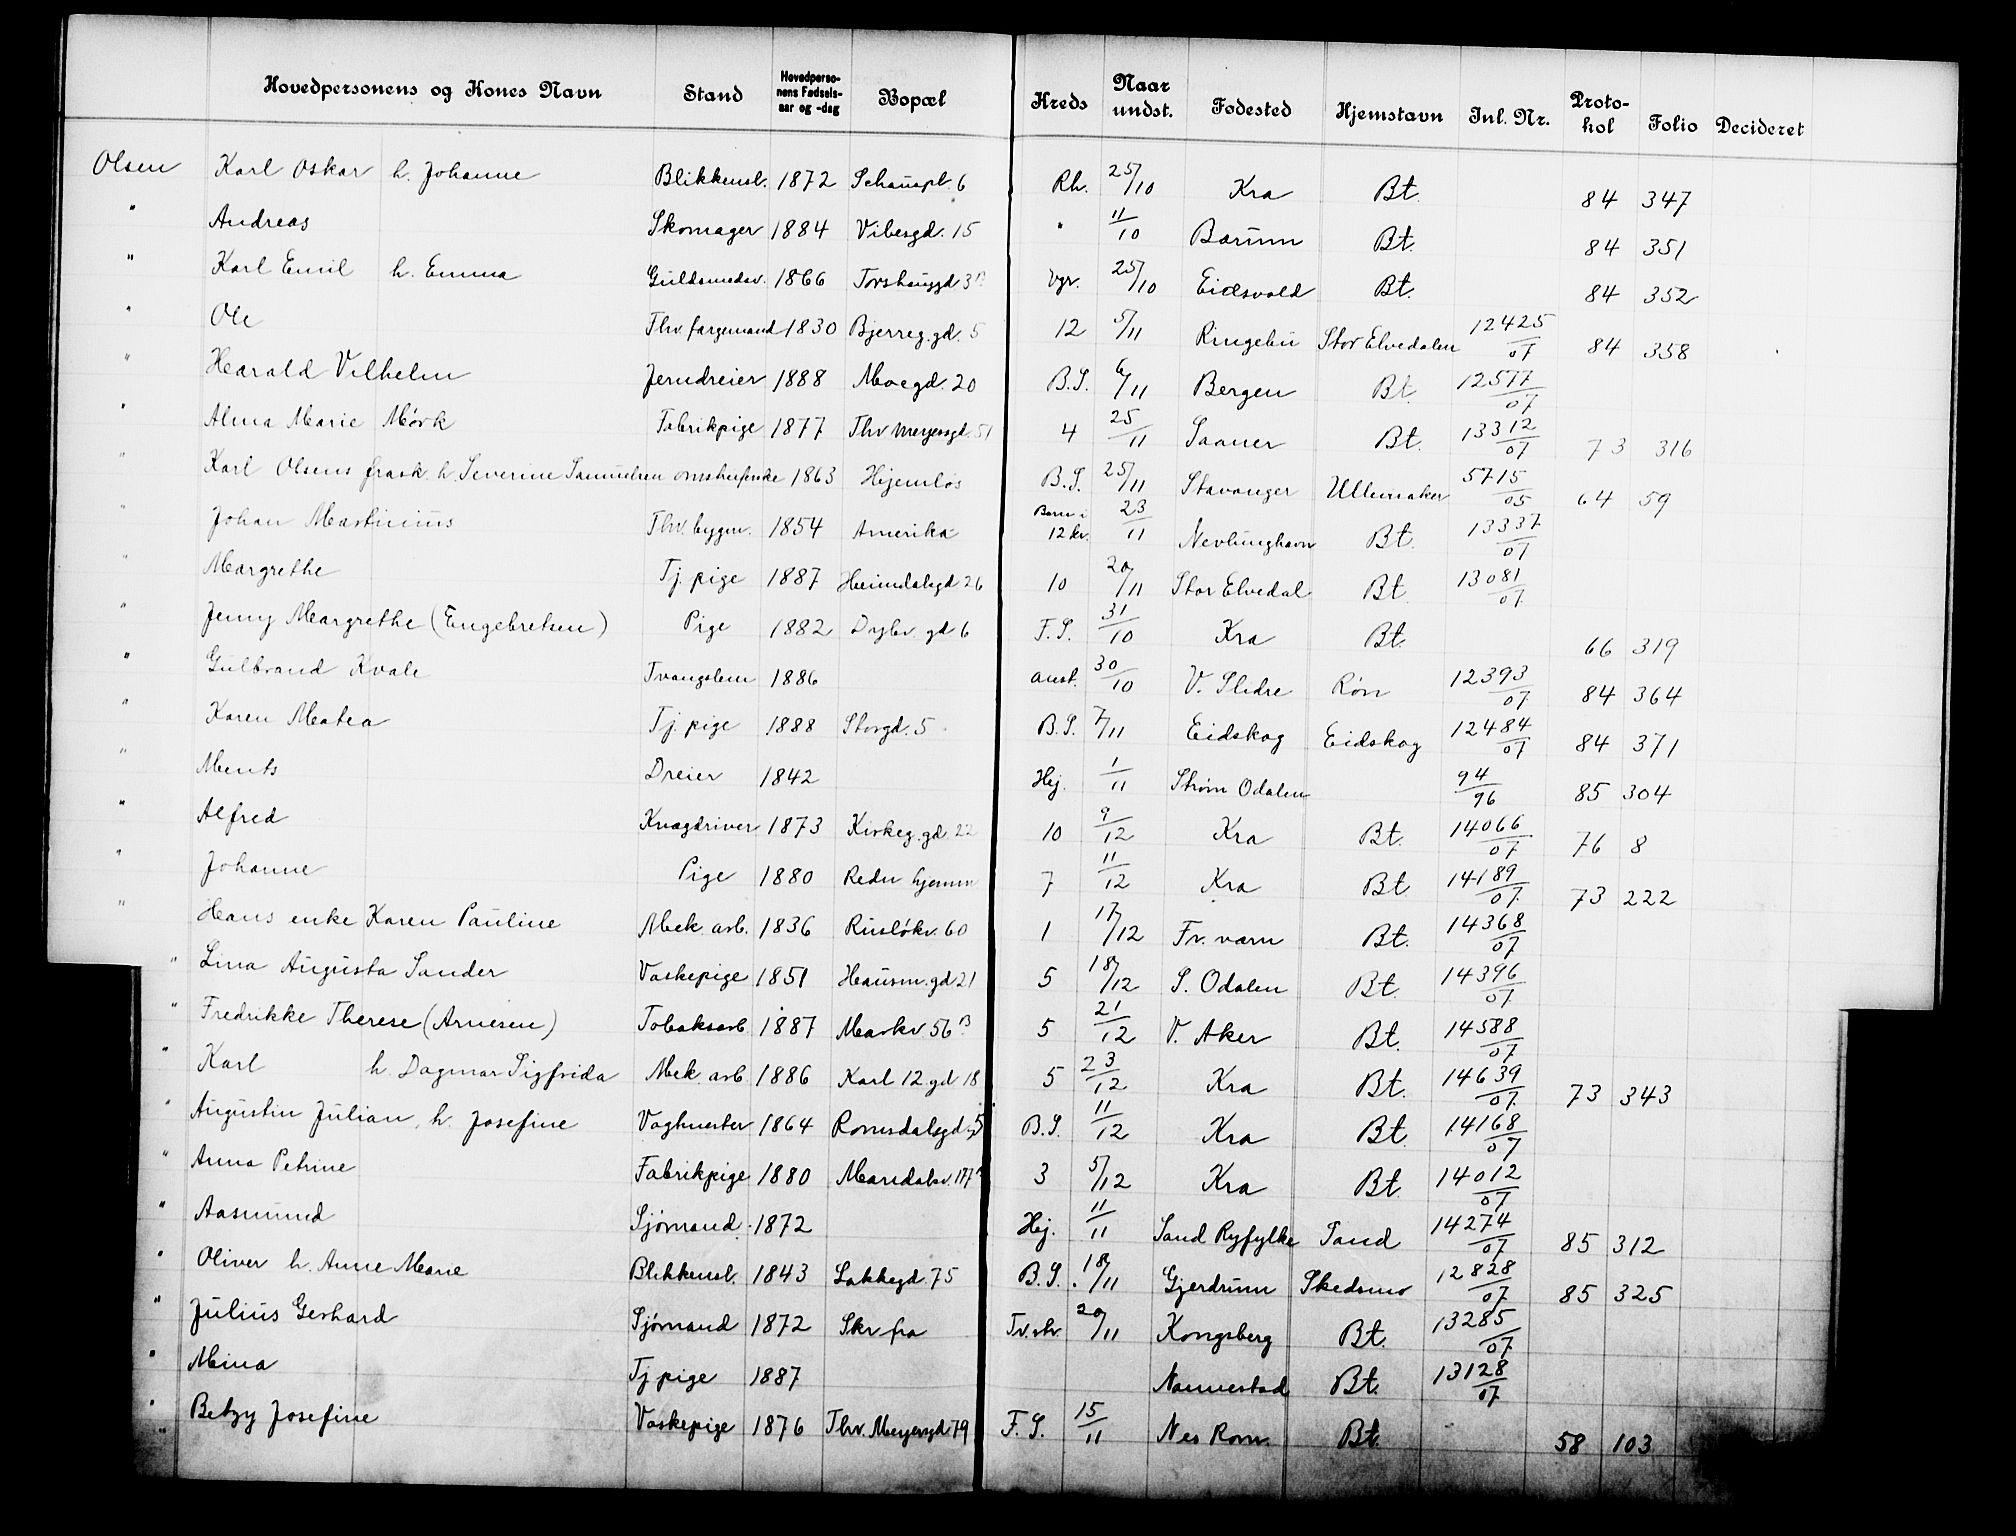 Hovedpersonens og Kones Navn Stand Hovedperso-nens Fødsels-aar og -dag Bopæl Kreds Naar undst. Fødested Hjemstavn Inl. Nr. Proto-kol Folio Decideret
Olsen Karl Oskar h. Johanne Blikkensl. 1872 Schouspl. 6 Rh. 25/10 Kra Bt. 84 347
" Andreas Skomager 1884 Vibesgd. 15 " 11/10 Bærum Bt. 84 351
" Karl Emil h. Emma Guldsmedsv. 1866 Torshauggd 3B Vgr. 25/10 Eidsvold Bt. 84 352
" Ole Thv. færgemand 1830 Bjerreg.gd. 5 12 5/11 Ringebu Stor Elvedalen 12425/07 84 358
" Harald Vilhelm Jerndreier 1888 Moegd. 20 B.S. 6/11 Bergen Bt. 12577/07
" Alma Marie Mørk Fabrikpige 1877 Thv Meyersgd. 51 4 25/11 Saaner Bt. 13312/07 73 316
" Karl Olsens frask. h. Severine Samuelsen omstreiferske 1863 Hjemløs B.S. 25/11 Stavanger Ullensaker 5715/05 64 59
" Johan Martinius Thv. bygm. 1854 Amerika Barn i 12 kr. 23/11 Nevlunghavn Bt. 13337/07
" Margrethe Tj. pige 1887 Heimdalsgd 26 10 20/11 Stor Elvedal Bt. 13081/07
" Jenny Margrethe (Engebretsen) Pige 1882 Dybv. gd 6 F.S. 31/10 Kra Bt. 66 319
" Gulbrand Kvale Tvangslem 1886 anst. 30/10 V. Slidre Røn 12393/07 84 364
" Karen Matea Tj. pige 1888 Storgd. 5 B.S. 7/11 Eidskog Eidskog 12484/07 84 371
" Ments Dreier 1842 Hej. 1/11 Strøm Odalen 94/96 85 304
" Alfred Kvægdriver 1873 Kirkeg.gd 22 10 9/12 Kra Bt. 14066/07 76 8
" Johanne Pige 1880 Redn hjemm 7 11/12 Kra Bt 14189/07 73 222
" Hans enke Karen Pauline Mek. arb. 1836 Ruseløkv. 60 1 17/12 Fr. værn Bt. 14368/07
" Lina Augusta Sander Vaskepige 1851 Hausm.gd 21 5 18/12 S. Odalen Bt. 14396/07
" Fredrikke Therese (Arnesen) Tobaksarb. 1887 Markv. 56B 5 21/12 V. Aker Bt. 14588/07
" Karl h. Dagmar Sigfrida Mek arb 1886 Karl 12.gd 18 5 23/12 Kra Bt. 14639/07 73 343
" Augustin Julian, h. Josefine Vagtmester 1864 Romsdalsgd. 5 B.S. 11/12 Kra Bt. 14168/07
" Anna Petrine Fabrikpige 1880 Maridalsv. 3 5/12 Kra Bt. 14012/07
" Aasmund Sjømand 1872 Hej. 11/11 Sand Ryfylke Sand 14274/07 85 312
" Oliver h. Anne Marie Blikkensl. 1843 Lakkegd. 75 B.S. 18/11 Gjerdrum Skedsmo 12828/07 85 325
" Julius Gerhard Sjømand 1872 Skr fra Tv.str. 20/11 Kongsberg Bt. 13285/07
" Mina Tj pige 1887 Nannestad Bt. 13128/07
" Betzy Josefine Vaskepige 1876 Thv. Meyersgd 79 F.S. 15/11 Nes Rom. Bt. 58 103